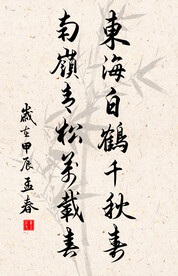 東海白鶴千秋壽
南嶺青松萬載春
歲在甲辰孟春